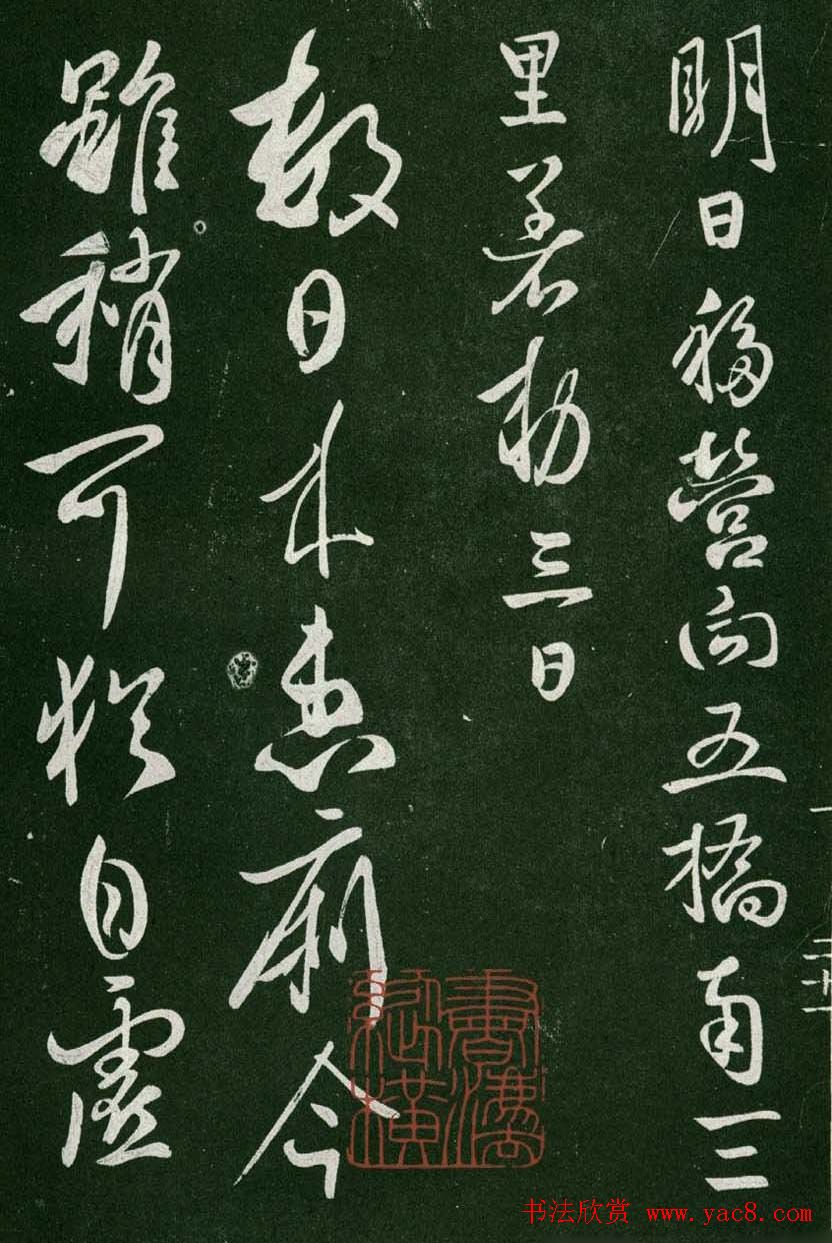 明日移營向五橋南三
里著勑三日
數日来患痢今
雖稍可猶自虛
書灋縱橫
书法欣赏 www.yac8.com